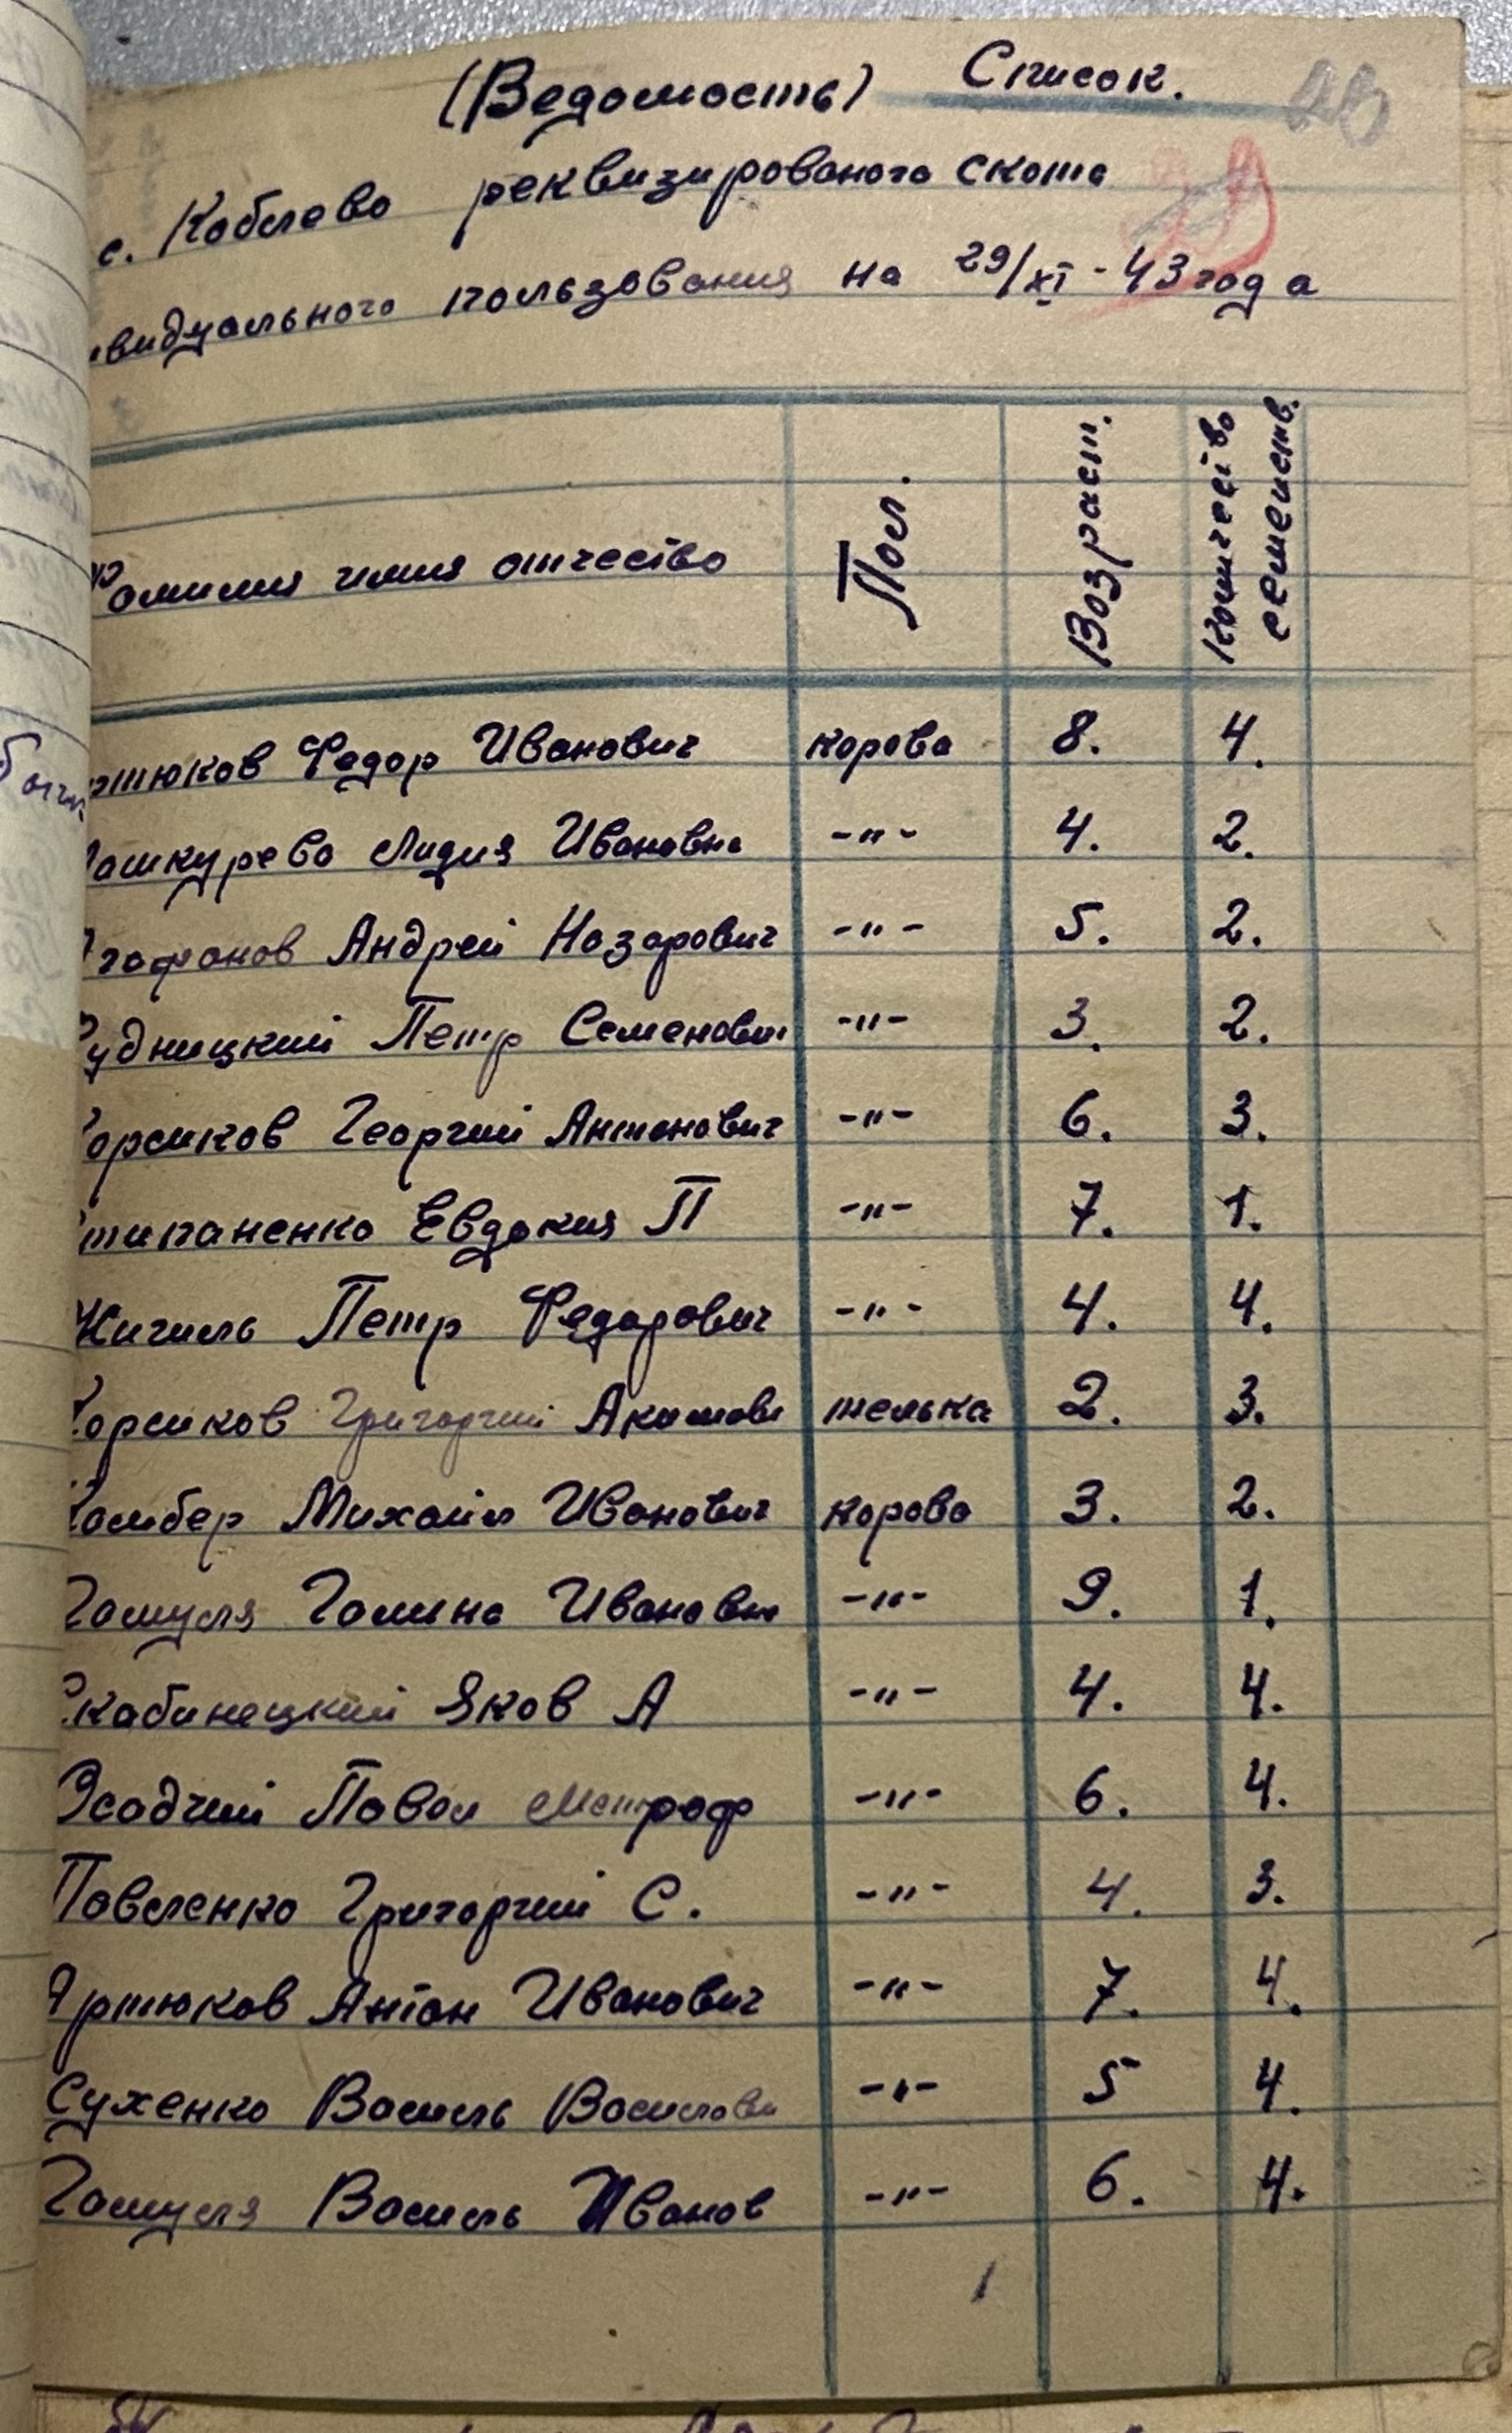 (Ведомость) Список.
с. Коблево реквизированого скота
ивидуального пользования на 29/XI - 43 года
Фамилия имия отчество Пол. Возраст. Количество семейств.
ртюков Федор Иванович корова 8. 4.
ашкурева Лидия Ивановна -"- 4. 2.
гафонов Андрей Назарович -"- 5. 2.
Рудницкий Петр Семенович -"- 3. 2.
Корсиков Георгий Антонович -"- 6. 3.
типаненко Евдокия П -"- 7. 1.
Жигиль Петр Федорович -"- 4. 4.
Корсиков Григорий Акимови телька 2. 3.
Камбер Михаил Иванович корова 3. 2.
Гамуля Галина Ивановн -"- 9. 1.
Скабинецкий Яков А -"- 4. 4.
Осадчий Павел Митроф -"- 6. 4.
Павленко Григорий С. -"- 4. 3.
Артюков Антон Иванович -"- 7. 4.
Сухенко Василь Василови -"- 5 4.
Гамуля Василь Иванов -"- 6. 4.